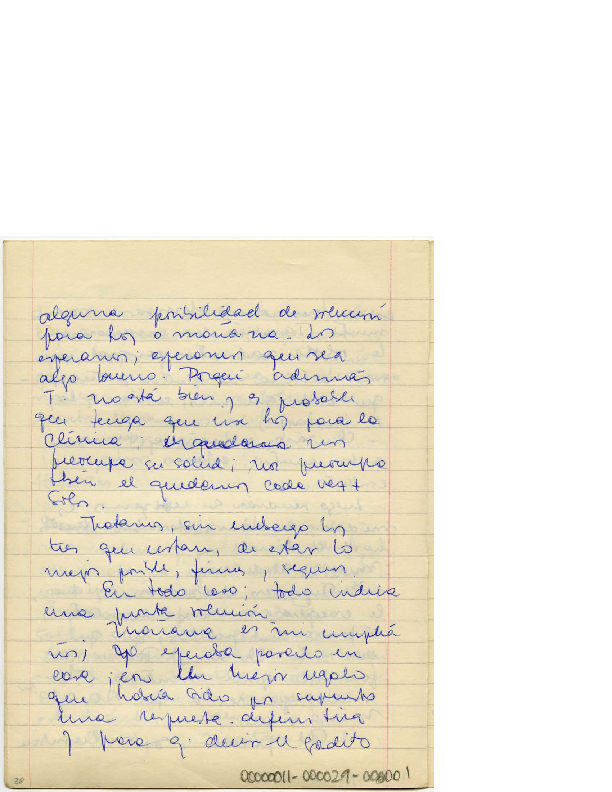 alguna posibilidad de solución
para hoy o mañana. Los
esperamos; esperamos que sea
algo bueno. Porque además
T. no está bien y es probable
que tenga que irse hoy para la
Clínica; nos
preocupa su salud; nos preocupa
tbién el quedarnos cada vez +
solos.
Tratamos, sin embargo los
tres que restan, de estar lo
mejor posible, firmes, seguros
En todo caso; todo indica
una pronta solución
Mañana es mi cumplea
ños; yo esperaba pasarlo en
casa; era mi mejor regalo
que había sido por supuesto
una respuesta definitiva
y para q. decir el gordito
00000011-000029-000001